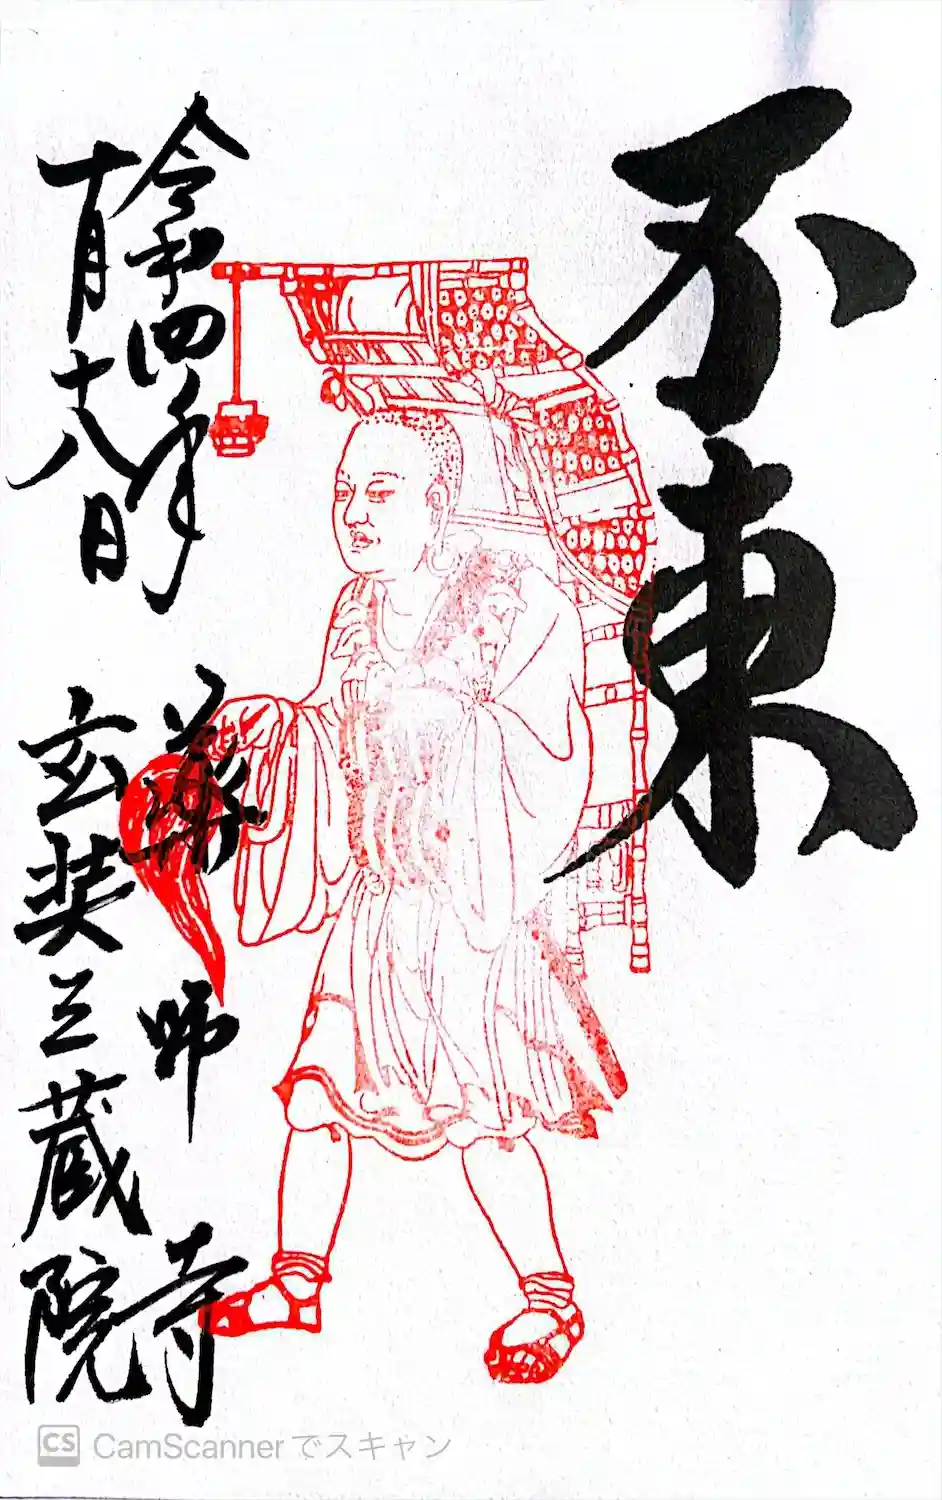 不東
令和四年
十月十八日
薬師寺
玄奘三蔵院
CS CamScanner でスキャン